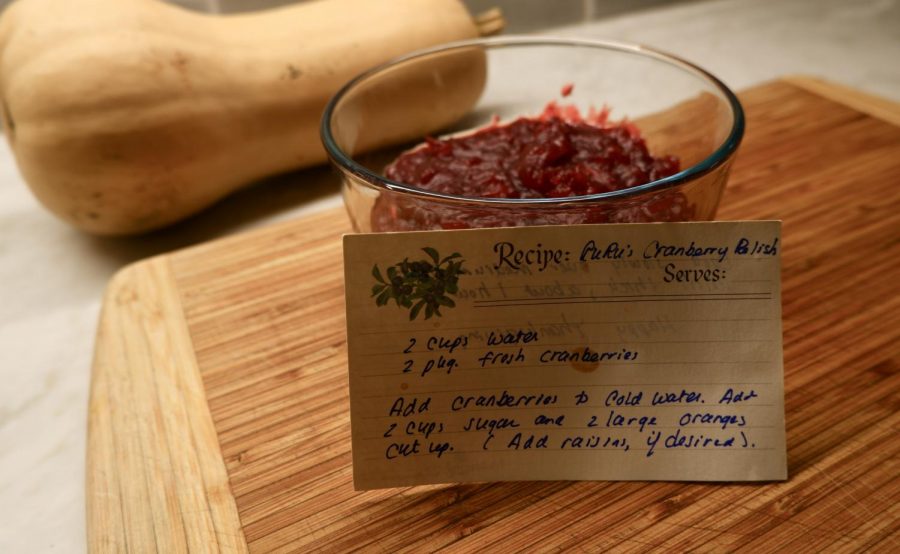 Recipe: RuRu's Cranberry Relish
Serves:
2 cups water
2 pkg. fresh cranberries
Add cranberries to cold water. Add
2 cups sugar and 2 large oranges
cut up. (Add raisins, if desired).